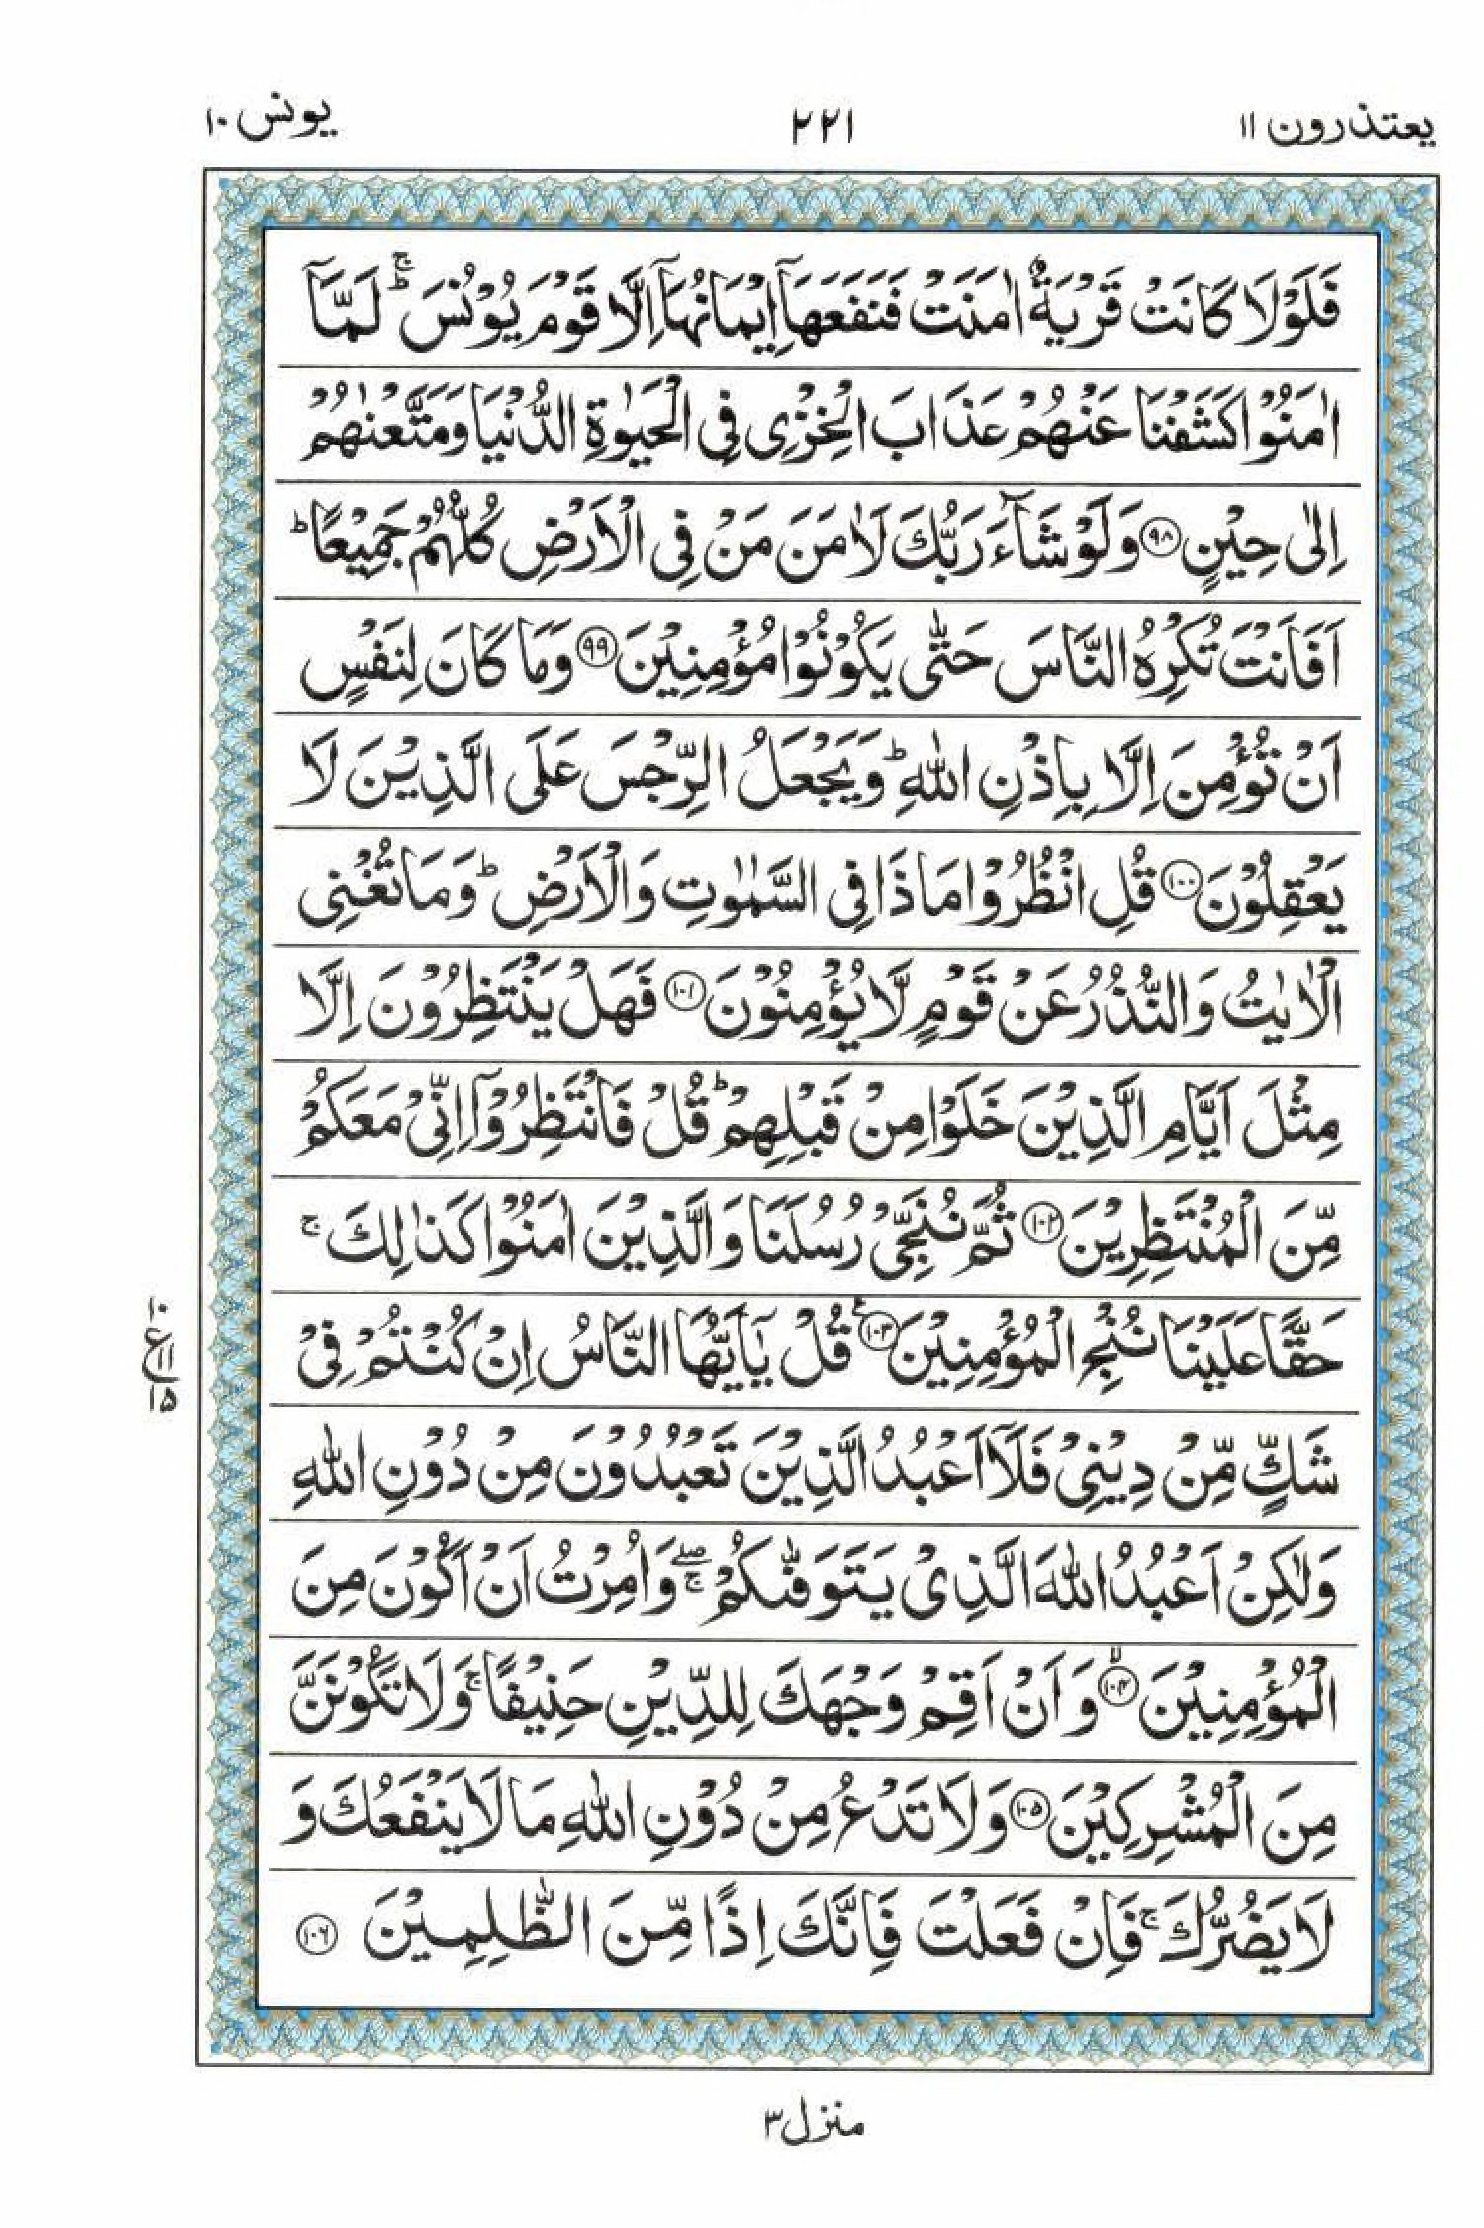 يعتذرون ۱۱
۲۲۱
يونس ۱۰
فَلَوْلَا كَانَتْ قَرْيَةٌ اٰمَنَتْ فَنَفَعَهَاۤ اِيْمَانُهَاۤ اِلَّا قَوْمَ يُوْنُسَ ؕۚ لَمَّاۤ
اٰمَنُوْا كَشَفْنَا عَنْهُمْ عَذَابَ الْخِزْىِ فِى الْحَيٰوةِ الدُّنْيَا وَمَتَّعْنٰهُمْ
اِلٰى حِيْنٍ ﴿۹۸﴾ وَلَوْ شَآءَ رَبُّكَ لَاٰمَنَ مَنْ فِى الْاَرْضِ كُلُّهُمْ جَمِيْعًا ؕ
اَفَاَنْتَ تُكْرِهُ النَّاسَ حَتّٰى يَكُوْنُوْا مُؤْمِنِيْنَ ﴿۹۹﴾ وَمَا كَانَ لِنَفْسٍ
اَنْ تُؤْمِنَ اِلَّا بِاِذْنِ اللّٰهِ ؕ وَيَجْعَلُ الرِّجْسَ عَلَى الَّذِيْنَ لَا
يَعْقِلُوْنَ ﴿۱۰۰﴾ قُلِ انْظُرُوْا مَاذَا فِى السَّمٰوٰتِ وَالْاَرْضِ ؕ وَمَا تُغْنِى
الْاٰيٰتُ وَالنُّذُرُ عَنْ قَوْمٍ لَّا يُؤْمِنُوْنَ ﴿۱۰۱﴾ فَهَلْ يَنْتَظِرُوْنَ اِلَّا
مِثْلَ اَيَّامِ الَّذِيْنَ خَلَوْا مِنْ قَبْلِهِمْ ؕ قُلْ فَانْتَظِرُوْۤا اِنِّىْ مَعَكُمْ
مِّنَ الْمُنْتَظِرِيْنَ ﴿۱۰۲﴾ ثُمَّ نُنَجِّىْ رُسُلَنَا وَالَّذِيْنَ اٰمَنُوْا كَذٰلِكَ ۚ
حَقًّا عَلَيْنَا نُنْجِ الْمُؤْمِنِيْنَ ﴿۱۰۳﴾ ع قُلْ يٰۤاَيُّهَا النَّاسُ اِنْ كُنْتُمْ فِىْ
۱۰ ع ۱۱ ۱۵
شَكٍّ مِّنْ دِيْنِىْ فَلَاۤ اَعْبُدُ الَّذِيْنَ تَعْبُدُوْنَ مِنْ دُوْنِ اللّٰهِ
وَلٰكِنْ اَعْبُدُ اللّٰهَ الَّذِىْ يَتَوَفّٰىكُمْ ۖۚ وَاُمِرْتُ اَنْ اَكُوْنَ مِنَ
الْمُؤْمِنِيْنَ ﴿۱۰۴﴾ ۙ وَاَنْ اَقِمْ وَجْهَكَ لِلدِّيْنِ حَنِيْفًا ۚ وَلَا تَكُوْنَنَّ
مِنَ الْمُشْرِكِيْنَ ﴿۱۰۵﴾ وَلَا تَدْعُ مِنْ دُوْنِ اللّٰهِ مَا لَا يَنْفَعُكَ وَ
لَا يَضُرُّكَ ۚ فَاِنْ فَعَلْتَ فَاِنَّكَ اِذًا مِّنَ الظّٰلِمِيْنَ ﴿۱۰۶﴾
منزل ۳